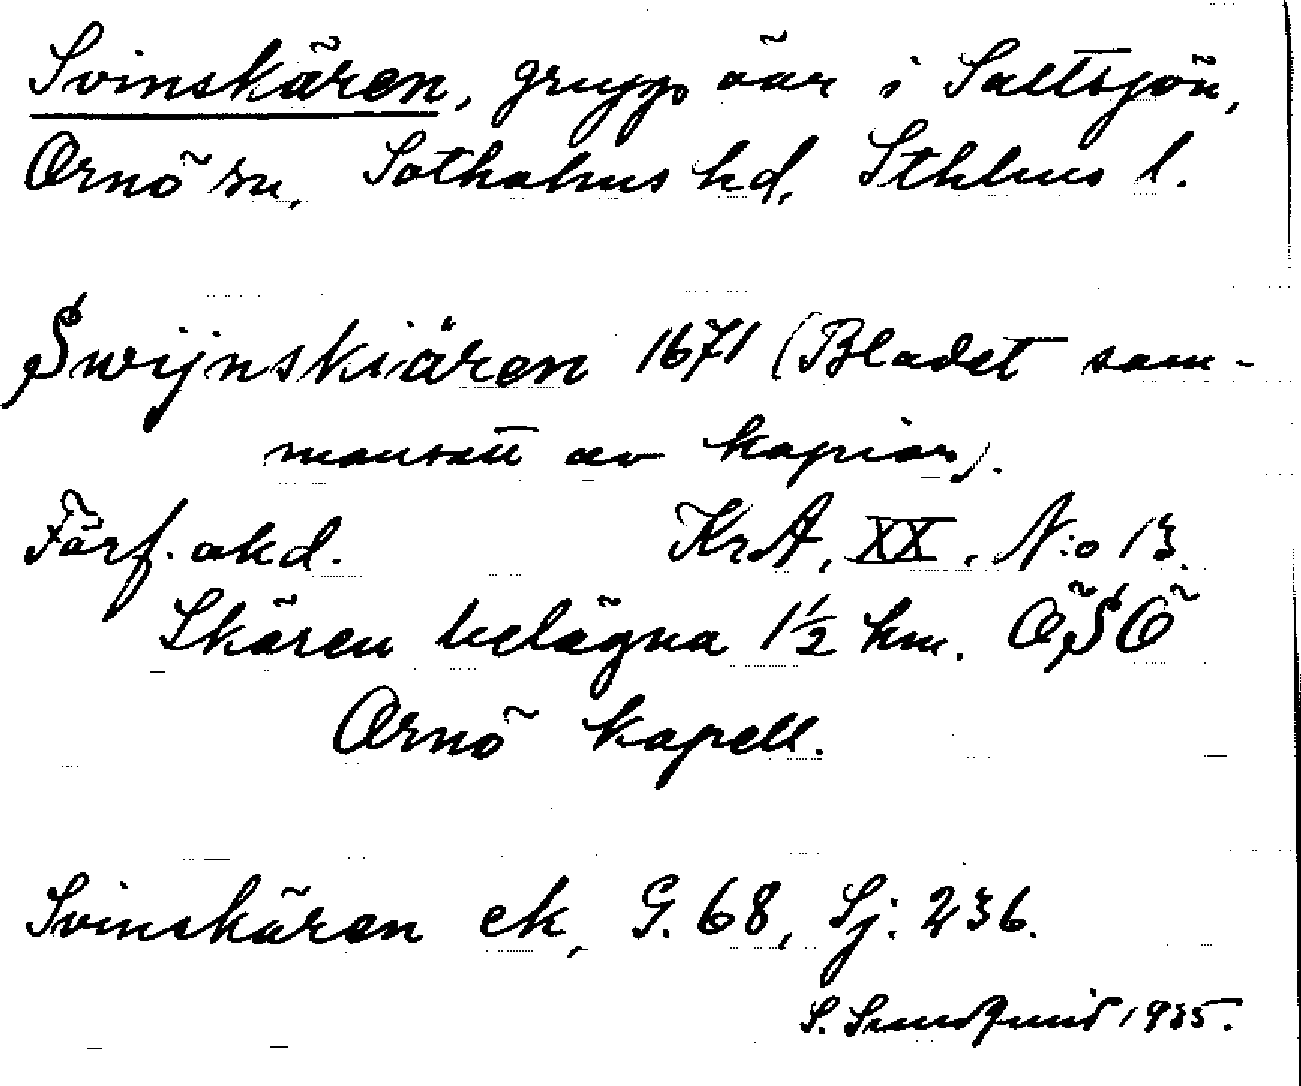 Svinskären, grupp öar i Saltsjön,
Ornö sn, Sotholms hd, Sthlms l.
Swijnskiären 1671 (Bladet sam-
mansatt av kopior).
Förf. okd. KrA, XX, N:o 13.
Skären belägna 1½ km. ÖSÖ
Ornö kapell.
Svinskären ek, G. 68, Sj: 236.
S. Sundquist 1935.